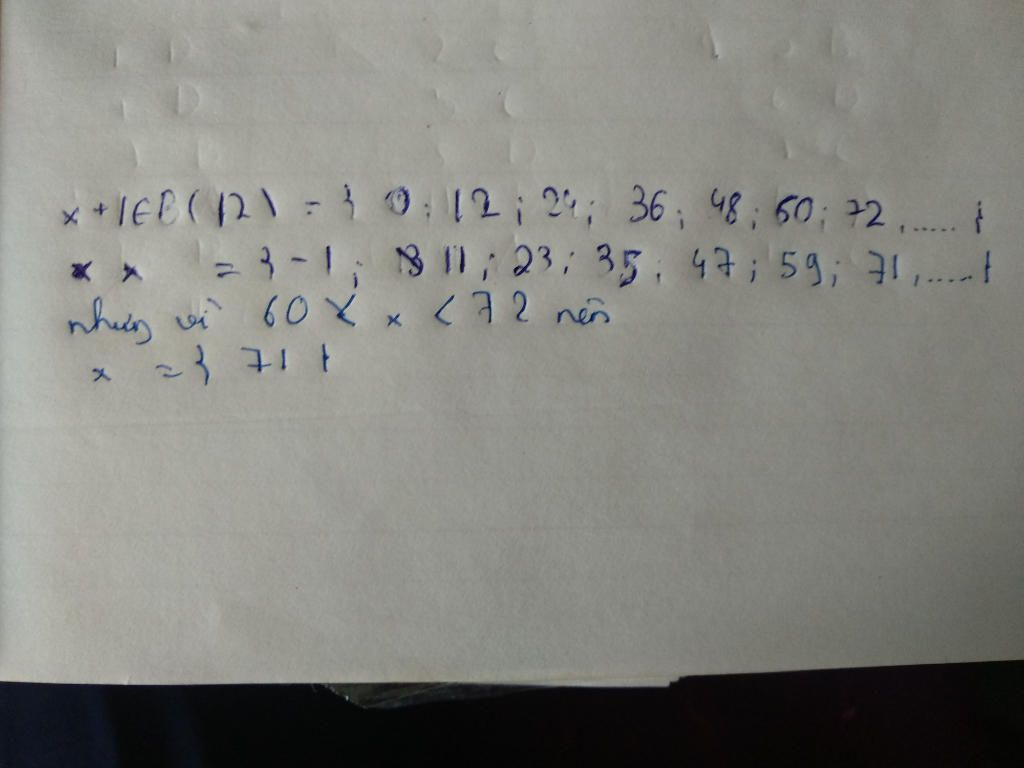 x + 1 ∈ B(12) = { 0; 12; 24; 36; 48; 60; 72, ..... }
x = { -1; 11; 23; 35; 47; 59; 71, ..... }
nhưng vì 60 < x < 72 nên
x = { 71 }